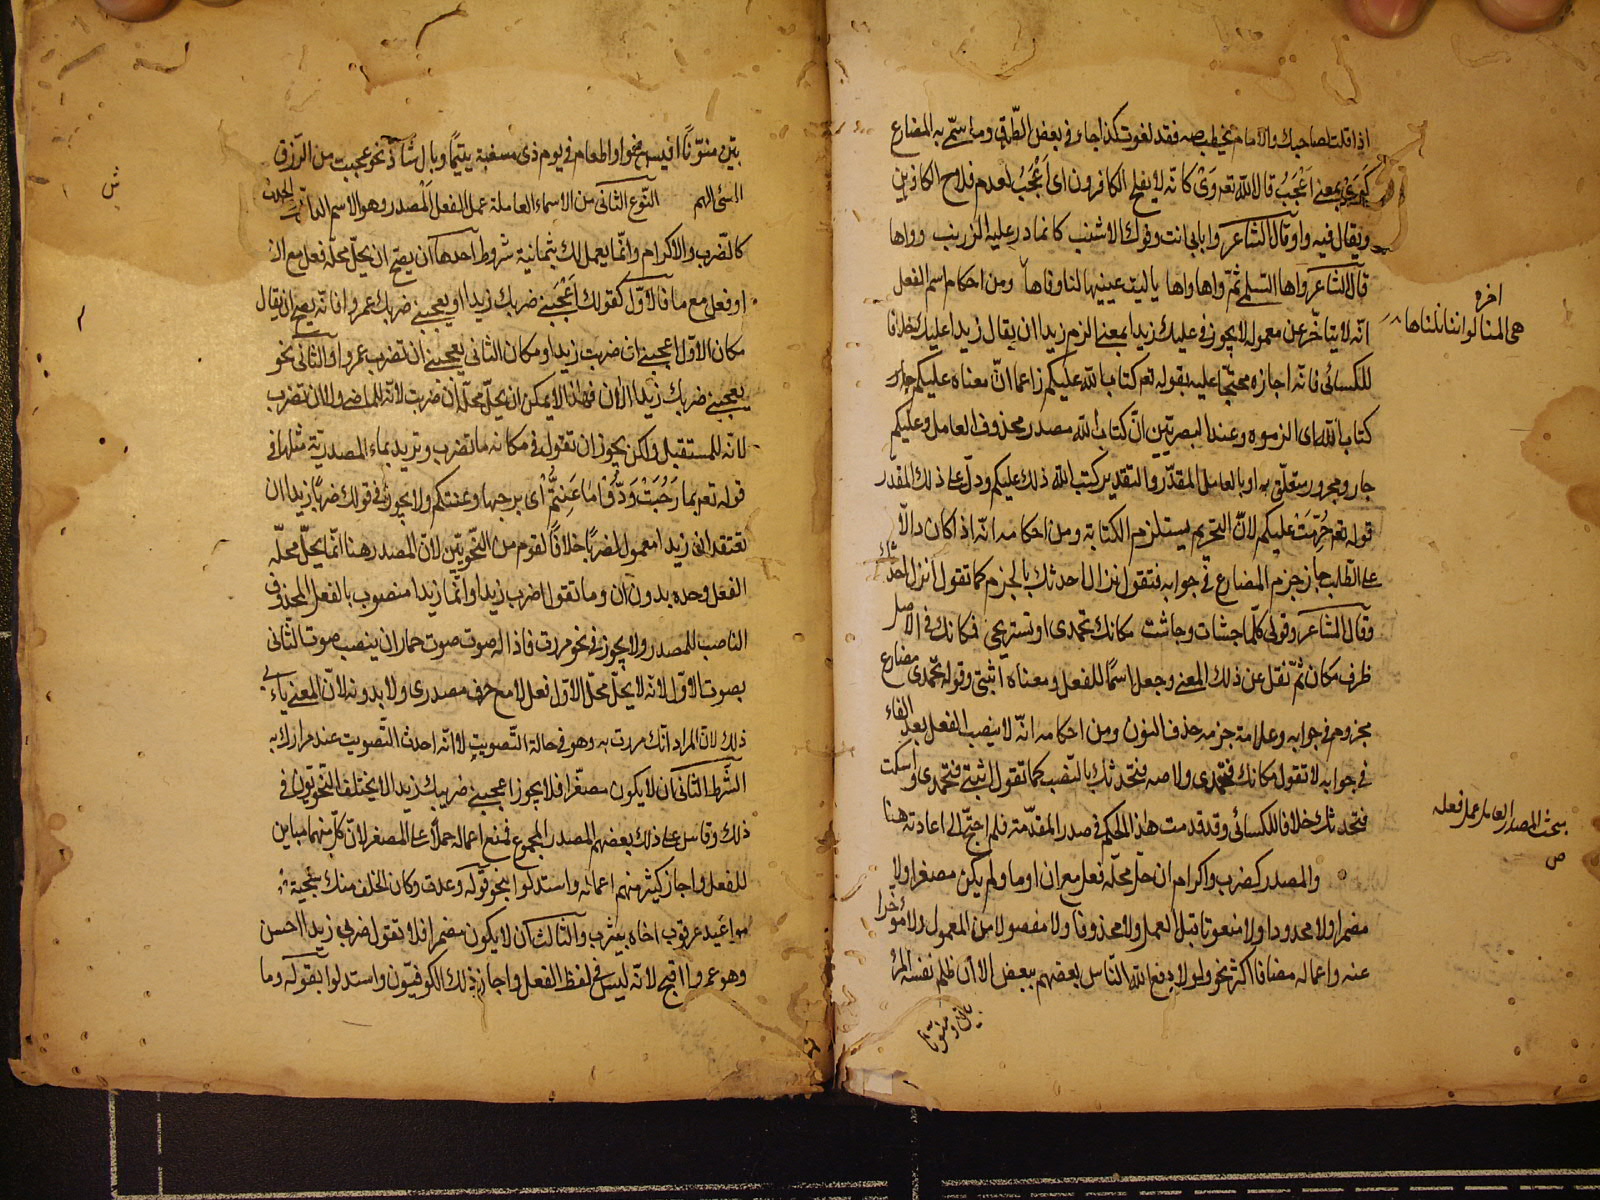 اذا قلت لصاحبك والامام يخطب صه فقد لغوت كذا جاء فى بعض الطرق وما سمّى به المضارع
كوى بمعنى اعْجَبُ قال الله تعه وَىْ كانّه لا يفلح الكافرون اى اَعْجَبُ لعدم فلاح الكافرين
ويقال فيه وا وقال الشاعر وا بابى انت وفوك الاشنب كانما ذر عليه الزرنب وواها
قال الشاعر واها لسلمى ثمّ واها واها يا ليت عينيها لنا وفاها ومن احكام اسم الفعل
اخره
هى المنا لو اننا نلناها
انّه لا يتاخّر عن معموله لا يجوز فى عليك زيدا بمعنى الزم زيدا ان يقال زيدا عليك خلافا
للكسائى فانّه اجازه محتجّا عليه بقوله تعه كتاب الله عليكم زاعما انّ معناه عليكم
كتاب الله اى الزموه وعند البصريّين انّ كتاب الله مصدر محذوف العامل وعليكم
جار ومجرور متعلّق به او بالعامل المقدّر والتقدير كتب الله ذلك عليكم ودلّ على ذلك المقدر
قوله تعه حُرِّمَتْ عليكم لانّ التحريم يستلزم الكتابة ومن احكامه انّه اذا كان دالّا
على الطلب جاز جزم المضارع فى جوابه فتقول نزال احدثك بالجزم كما تقول انزل احدثك
وقال الشاعر وقولى كلّما جشات وجاشت مكانك تحمدى او تستريحى فمكانك فى الاصل
ظرف مكان ثمّ نقل عن ذلك المعنى وجعل اسمًا للفعل ومعناه اثبتى وقوله تحمدى مضارع
مجزوم فى جوابه وعلامة جزمه حذف النون ومن احكامه انّه لا ينصب الفعل بعد الفاء
فى جوابه لا تقول مكانك فتحمدى ولا صه فنحدثك بالنصب كما تقول اثبتى فتحمدى واسكت
فنحدثك خلافا للكسائى وقد قدمت هذا الحكم فى صدر المقدّمة فلم احتج الى اعادته هنا
بحث المصدر العامل عمل فعله
ص
والمصدر كضرب واكرام ان حلّ محلّه فعل مع ان او ما ولم يكن مصغرا ولا
مضمرا ولا محدودا ولا منعوتا قبل العمل ولا محذوفا ولا مفصولا من المعمول ولا مؤخرا
عنه واعماله مضافا اكثر نحو ولولا دفع الله الناس بعضهم ببعض الا انّ ظلم نفسه المرؤ
بيّن ومنوّنا
بيّن ومنوّنًا اقيس نحو او اطعام فى يوم ذى مسغبة يتيمًا وبال شاذّ نحو عجبت من الرزق
ش
المسئى الهه النّوع الثّانى من الاسماء العاملة عمل الفعل المصدر وهو الاسم الدال على الحدث
كالضّرب والاكرام وانّما يعمل لك بثمانية شروط احدها ان يصحّ ان يحلّ محلّه فعل مع ان
او فعل مع ما فالاوّل كقولك اَعْجَبَنى ضربك زيدا او يعجبنى ضربك عمروا فانّه يصح ان يقال
مكان الاوّل اعجبنى ان ضربت زيدا ومكان الثانى يعجبنى ان تضرب عمروا والثّانى نحو
يعجبنى ضربك زيدا الان فهذا لا يمكن ان يحلّ محلّه ان ضربت لانّه للماضى ولا ان تضرب
لانّه للمستقبل ولكن يجوز ان تقول فى مكانه ما تضرب وتريد بما المصدريّة مثلها فى
قوله تعه بما رَحُبَتْ وَدُّوْا مَا عَنِتُّمْ اى برحبها وعنتكم ولا يجوز فى قولك ضربًا زيدا ان
تعتقد انّ زيدا معمول لضربًا خلافًا لقوم من النّحويّين لانّ المصدر هنا انّما يحلّ محلّه
الفعل وحده بدون ان وما تقول اضرب زيدا وانّما زيدا منصوب بالفعل المحذوف
الناصب للمصدر ولا يجوز فى نحو مررت فاذا له صوت صوت حمار ان ينصب صوت الثّانى
بصوت الاوّل لانّه لا يحلّ محلّ الاوّل فعل لا مع حرف مصدرى ولا بدونه لانّ المعنى يابى
ذلك لانّ المراد انّك مررت به وهو فى حالة التّصويت لا انّه احدث التّصويت عند مرارك به
الشّرط الثّانى ان لا يكون مصغّرا فلا يجوز اعجبنى ضريبك زيدا لا يختلف النّحويّون فى
ذلك وقاس على ذلك بعضهم المصدر المجموع فمنع اعماله حملًا على المصغر لانّ كلّا منهما مباين
للفعل واجاز كثير منهم اعماله واستدلّوا بنحو قوله وعدت وكان الخلف منك سجية
مواعيد عرقوب اخاه بيثرب والثّالث ان لا يكون مضمرا فلا تقول ضربى زيدا احسن
وهو عمروا اقبح لانّه ليس فيه لفظ الفعل واجاز ذلك الكوفيّون واستدلوا بقوله وما